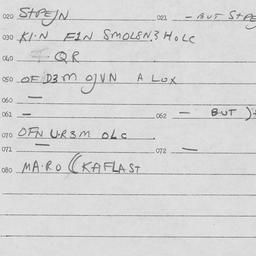 020 STPEJN 021 - BUT STPE
030 KI·N FIN SMOLEN3 HOLC
040 QR
050 OF D3M OJVN A LUX
060 —
061 — 062 — BUT
070 OFN UR3M OLC
071 — 072 —
080 MA·RO ((KAFLAST